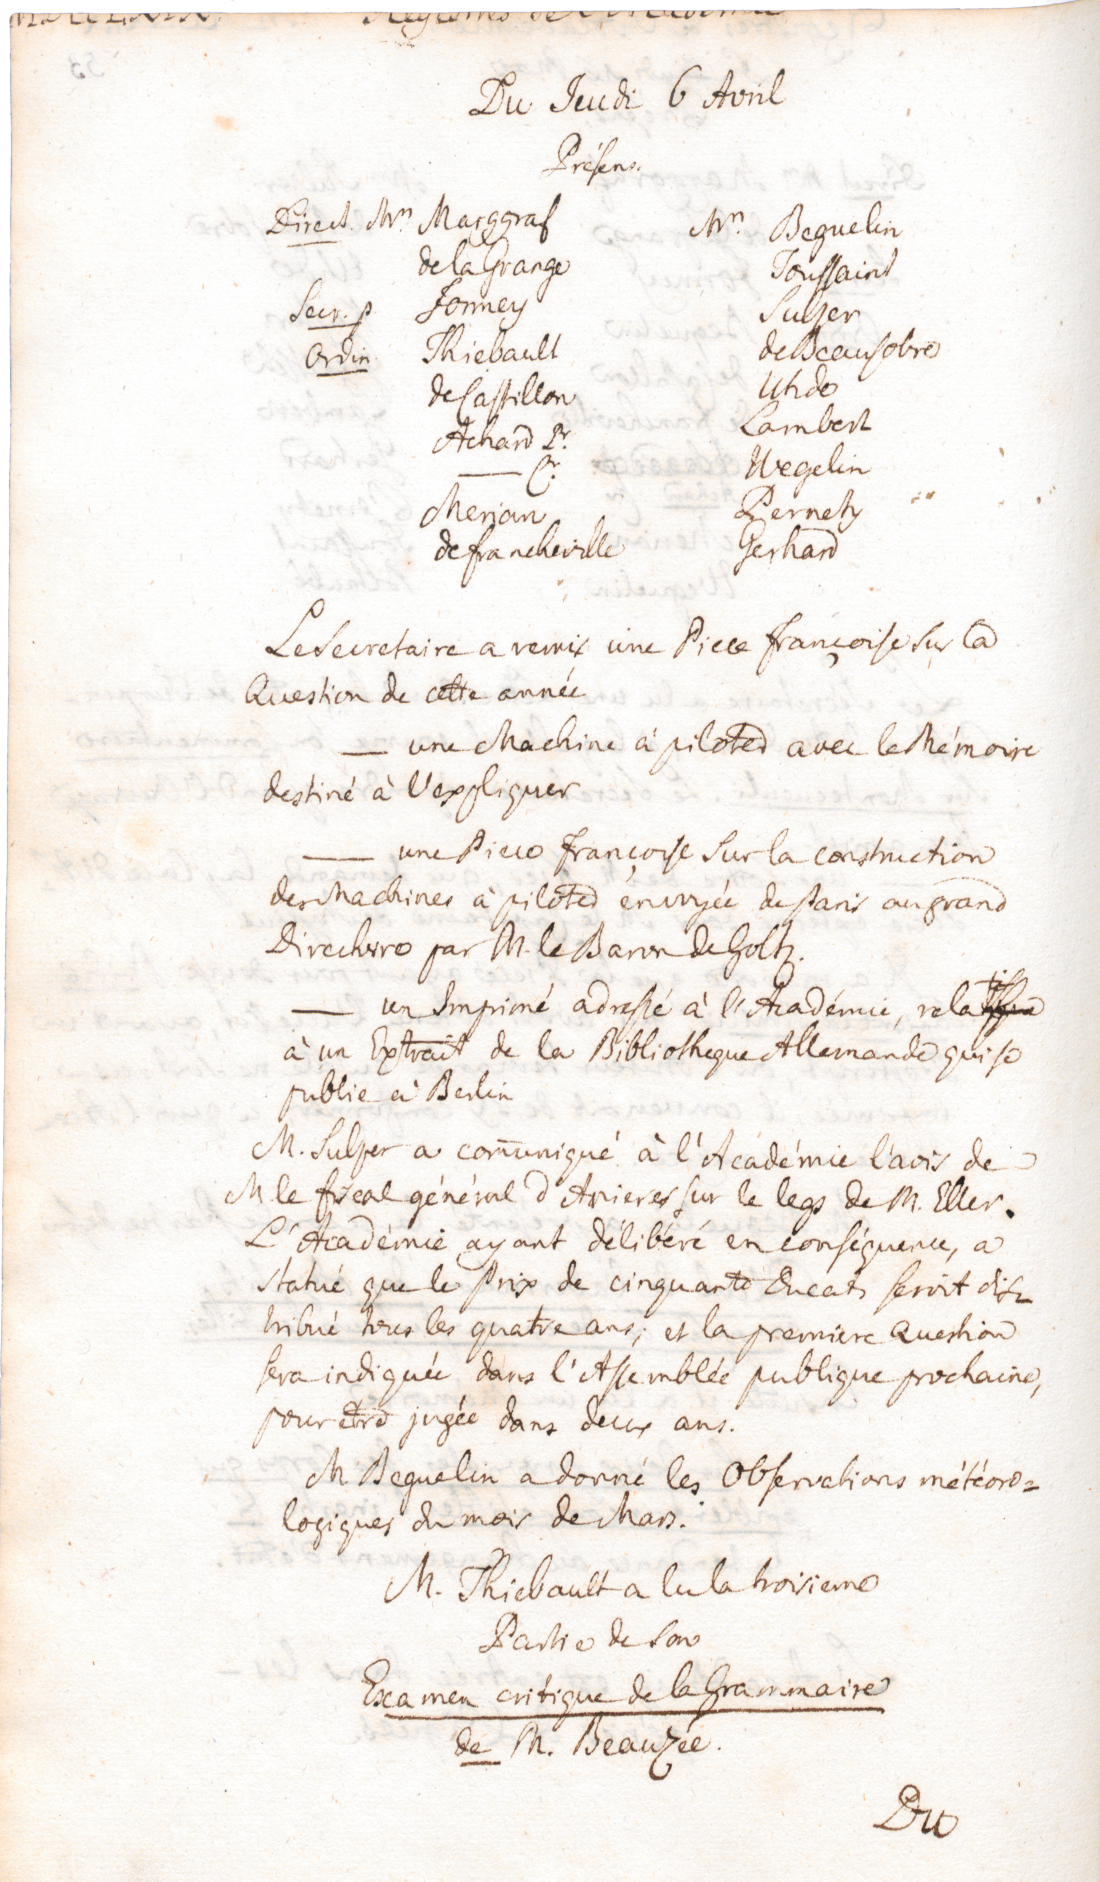 Registres de l'Académie
Du Jeudi 6 Avril
Présens.
Direct. Mrs Marggraf
de la Grange
Secr. p Formey
Ordin. Thiebault
de Castillon
Achard Pr.
—— Cr.
Merian
de francheville
Mrs Beguelin
Toussaint
Sulzer
de Beausobre
Uhde
Lambert
Wegelin
Pernety
Gerhard
Le Secretaire a remis une Piece françoise sur la
Question de cette année
— une Machine à piloter avec le Mémoire
destiné à l'expliquer
— une Piece françoise sur la construction
des Machines à piloter envoyée de Paris au grand
Directoire par M. le Baron de Goltz.
— un Imprimé adressé à l'Académie, relatif
à un Extrait de la Bibliotheque Allemande qui se
publie à Berlin
M. Sulzer a com̄uniqué à l'Académie l'avis de
M le fiscal général d'Anieres sur le legs de M. Eller.
L'Académie ayant délibéré en conséquence, a
statué que le Prix de cinquante Ducats seroit dis-
tribué tous les quatre ans; et la premiere Question
sera indiquée dans l'Assemblée publique prochaine,
pour etre jugée dans deux ans.
M Beguelin a donné les Observations météoro=
logiques du mois de Mars.
M. Thiebault a lu la troisieme
Partie de son
Examen critique de la Grammaire
de M. Beauzée.
Du